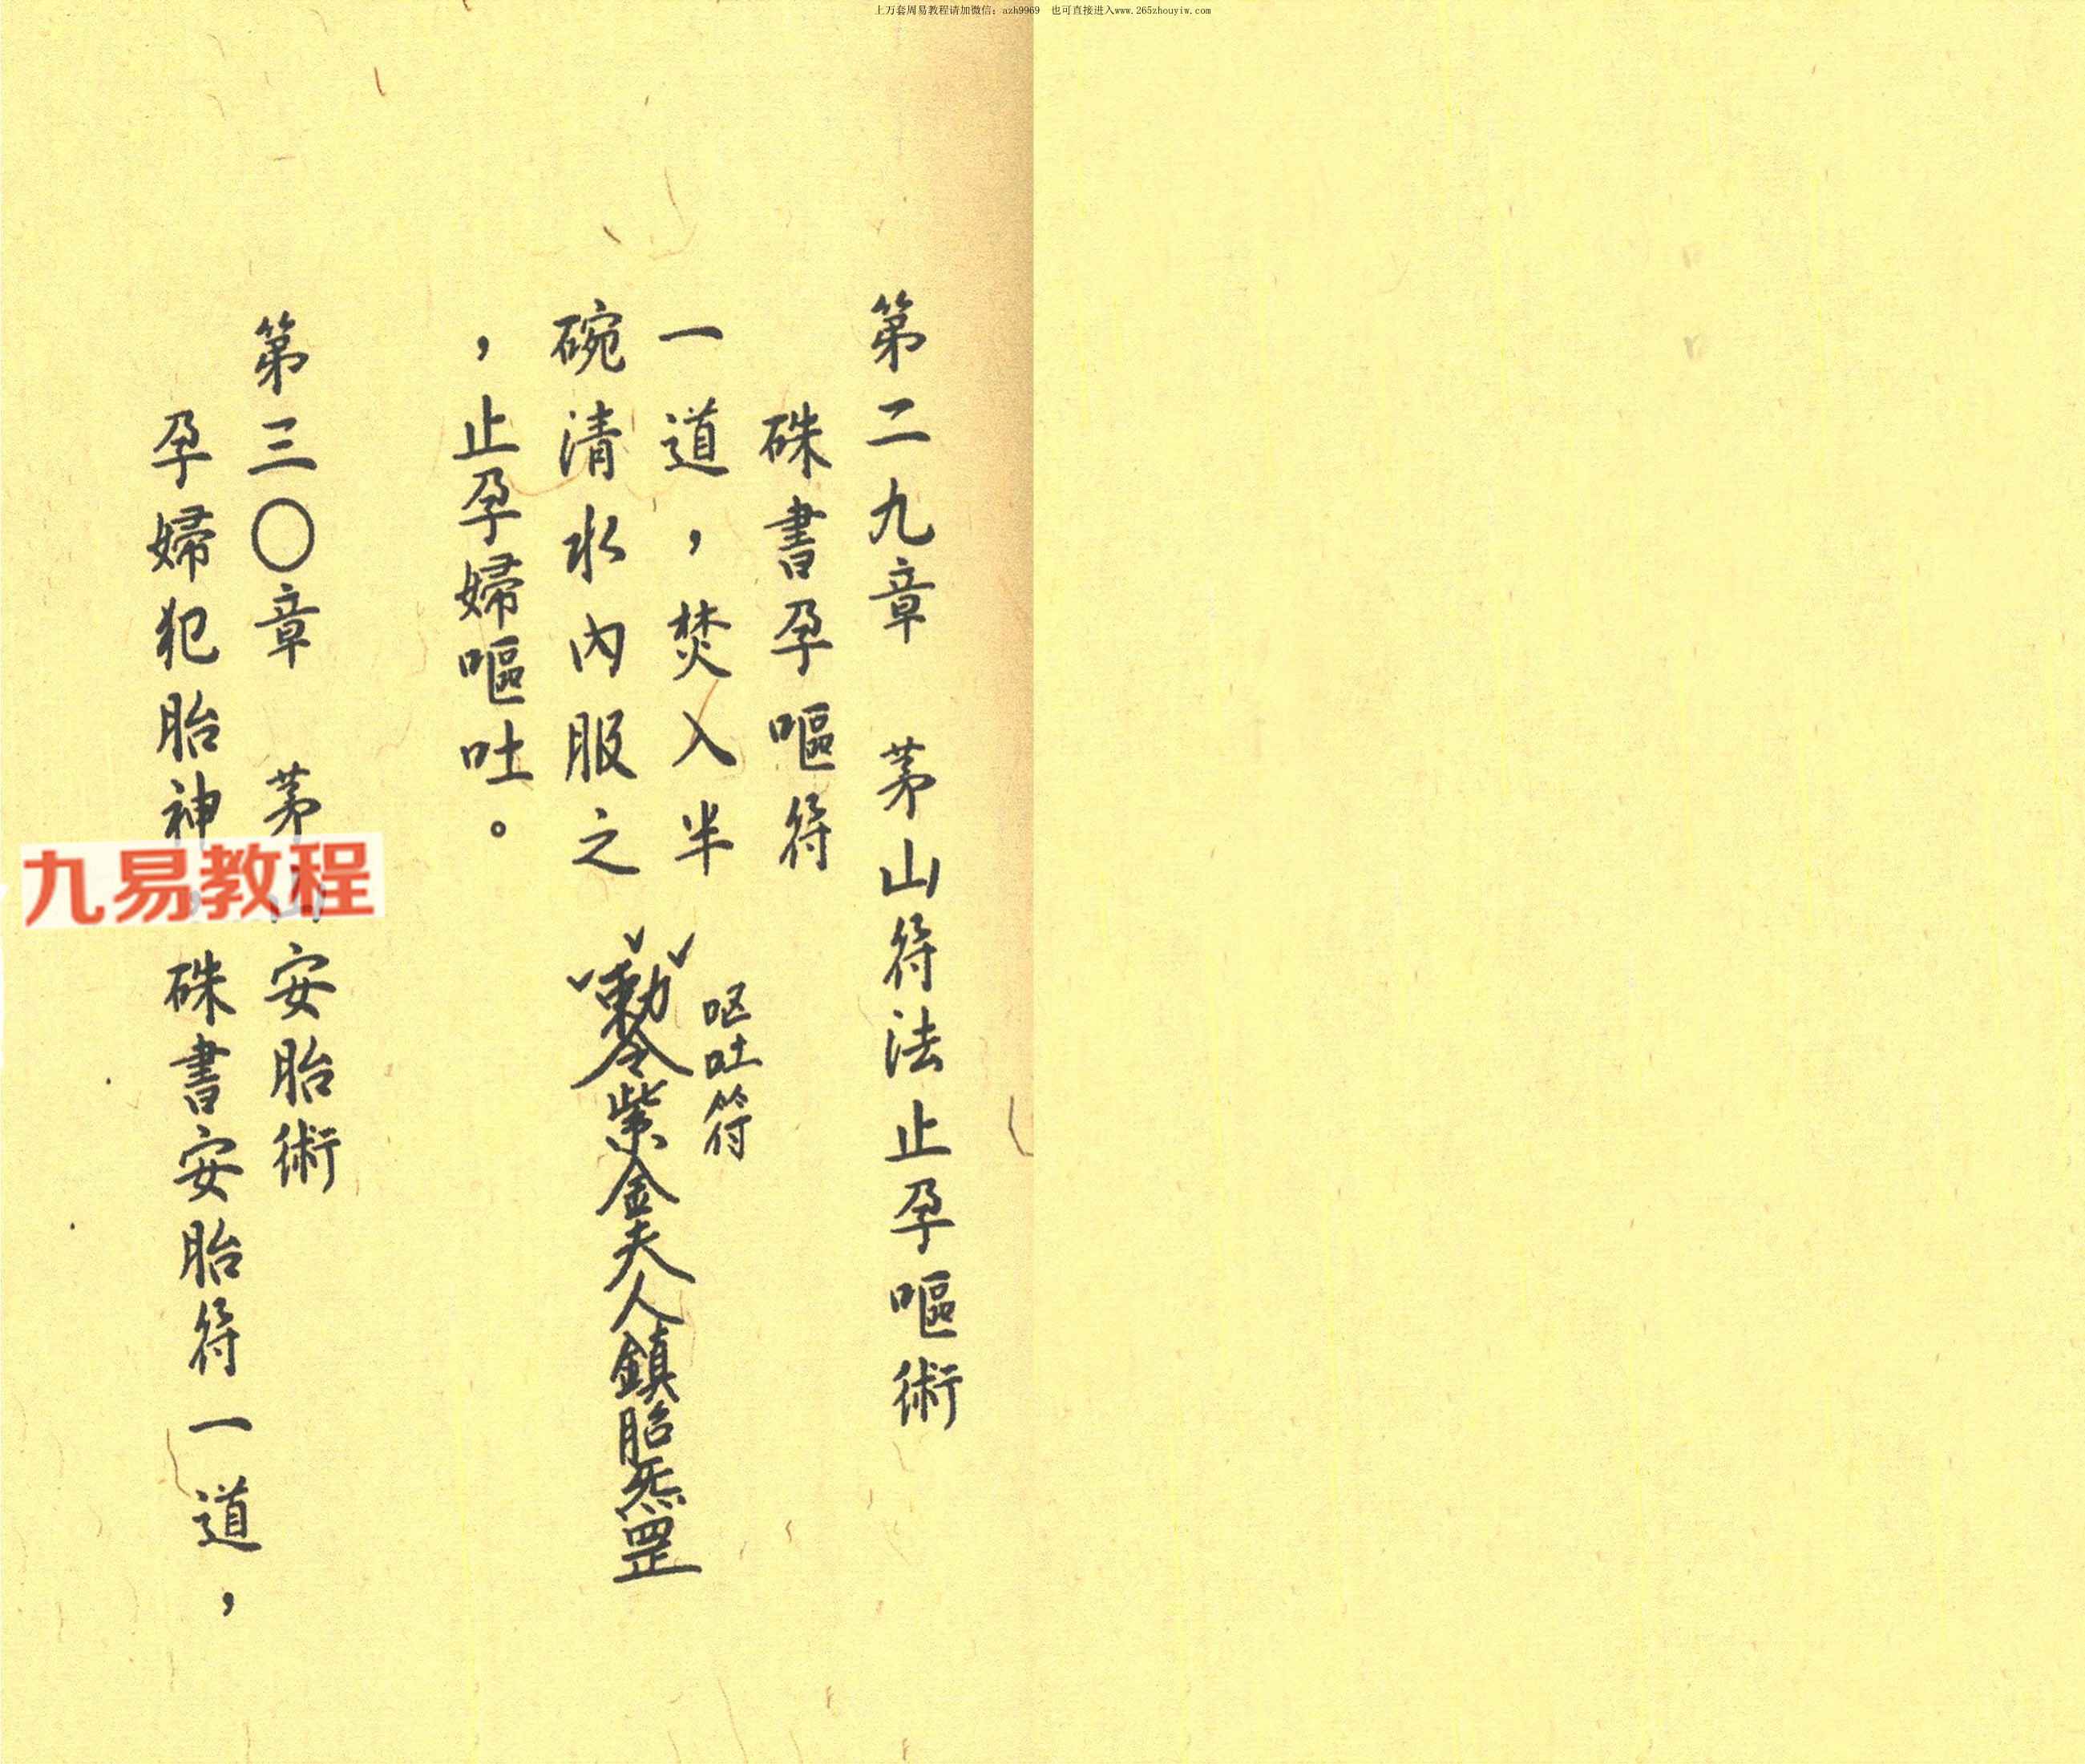 上万套周易教程请加微信：azh9969 也可直接进入www.265zhouyiw.com
第二九章 茅山符法止孕嘔術
硃書孕嘔符
一道，焚入半
碗清水內服之
，止孕婦嘔吐。
呕吐符
勅令紫金夫人鎮胎炁罡
第三〇章 茅山安胎術
孕婦犯胎神，硃書安胎符一道，
九易教程